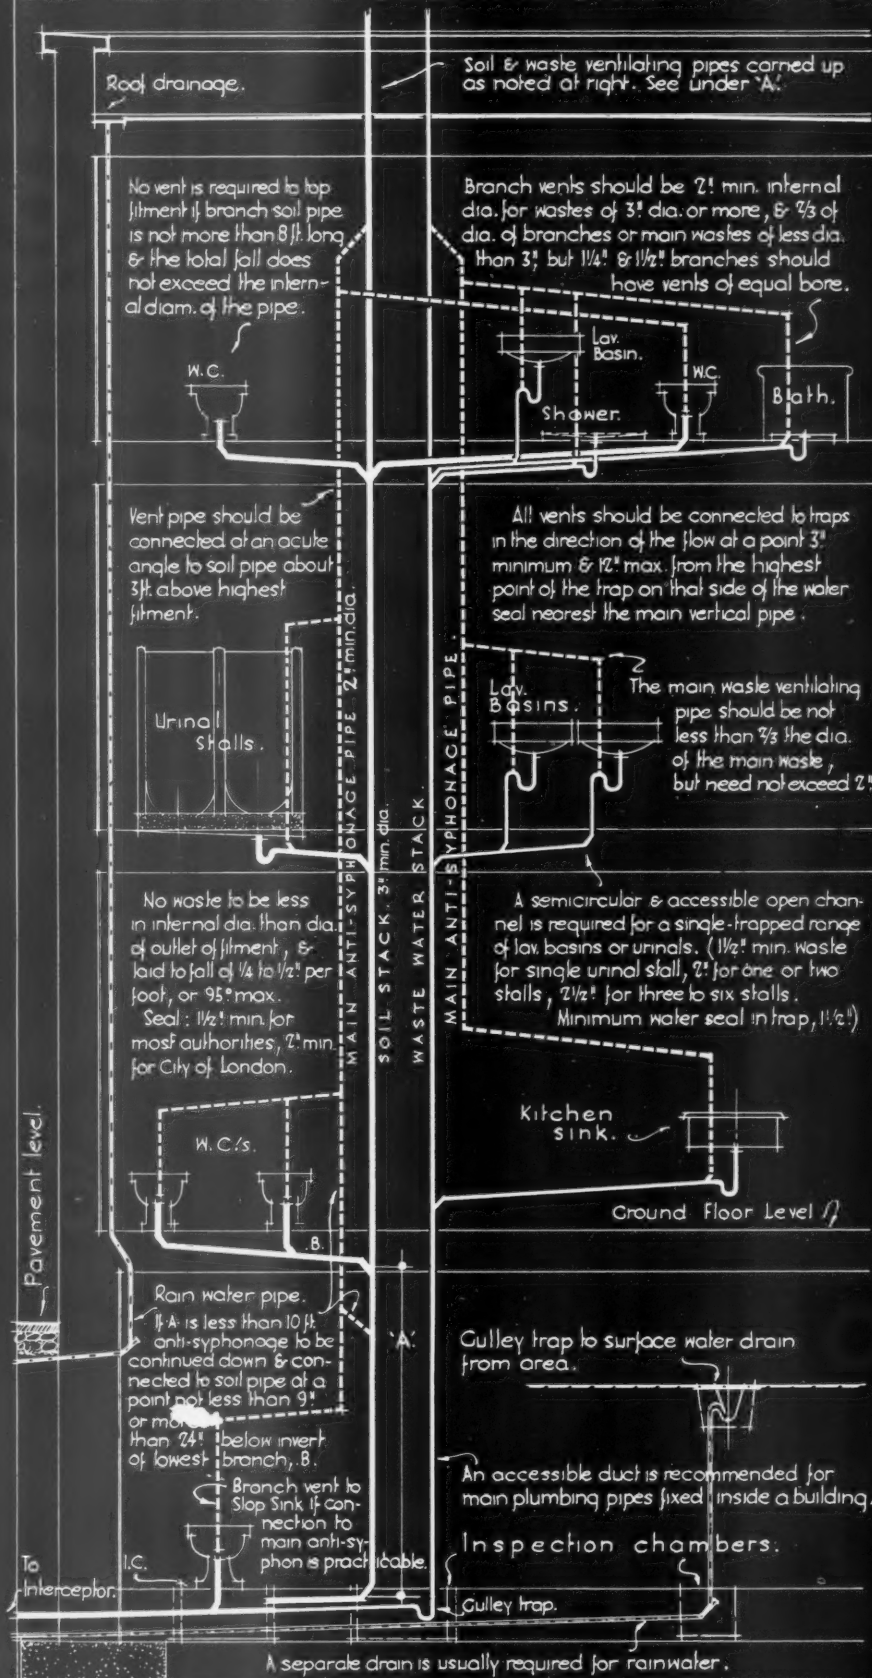 Roof drainage.
Soil & waste ventilating pipes carried up
as noted at right. See under 'A'.
No vent is required to top
fitment if branch soil pipe
is not more than 8 ft. long
& the total fall does
not exceed the intern-
al diam. of the pipe.
Branch vents should be 2" min. internal
dia. for wastes of 3" dia. or more, & 2/3 of
dia. of branches or main wastes of less dia.
than 3", but 1¼" & 1½" branches should
have vents of equal bore.
W.C.
Lav.
Basin.
Shower.
W.C.
Bath.
Vent pipe should be
connected at an acute
angle to soil pipe about
3ft. above highest
fitment.
All vents should be connected to traps
in the direction of the flow at a point 3"
minimum & 12" max. from the highest
point of the trap on that side of the water
seal nearest the main vertical pipe.
Urinal
Stalls.
Lav.
Basins.
The main waste ventilating
pipe should be not
less than 2/3 the dia.
of the main waste,
but need not exceed 2"
MAIN ANTI-SYPHONAGE PIPE 2" min. dia.
SOIL STACK. 3" min. dia.
WASTE WATER STACK.
MAIN ANTI-SYPHONAGE PIPE.
No waste to be less
in internal dia. than dia.
of outlet of fitment, &
laid to fall of ¼ to ½" per
foot, or 95° max.
Seal: 1½" min. for
most authorities, 2" min.
for City of London.
A semicircular & accessible open chan-
nel is required for a single-trapped range
of lav. basins or urinals. (1½" min. waste
for single urinal stall, 2" for one or two
stalls, 2½" for three to six stalls.
Minimum water seal in trap, 1½")
W.C.'s.
Kitchen
sink.
Ground Floor Level
Pavement level.
.B.
Rain water pipe.
If A is less than 10 ft.
anti-syphonage to be
continued down & con-
nected to soil pipe at a
point not less than 9"
or more
than 24" below invert
of lowest branch, .B.
'A'.
Gulley trap to surface water drain
from area.
Branch vent to
Slop Sink if con-
nection to
main anti-sy-
phon is practicable.
An accessible duct is recommended for
main plumbing pipes fixed inside a building.
Inspection chambers.
To
Interceptor.
I.C.
Gulley trap.
A separate drain is usually required for rainwater.